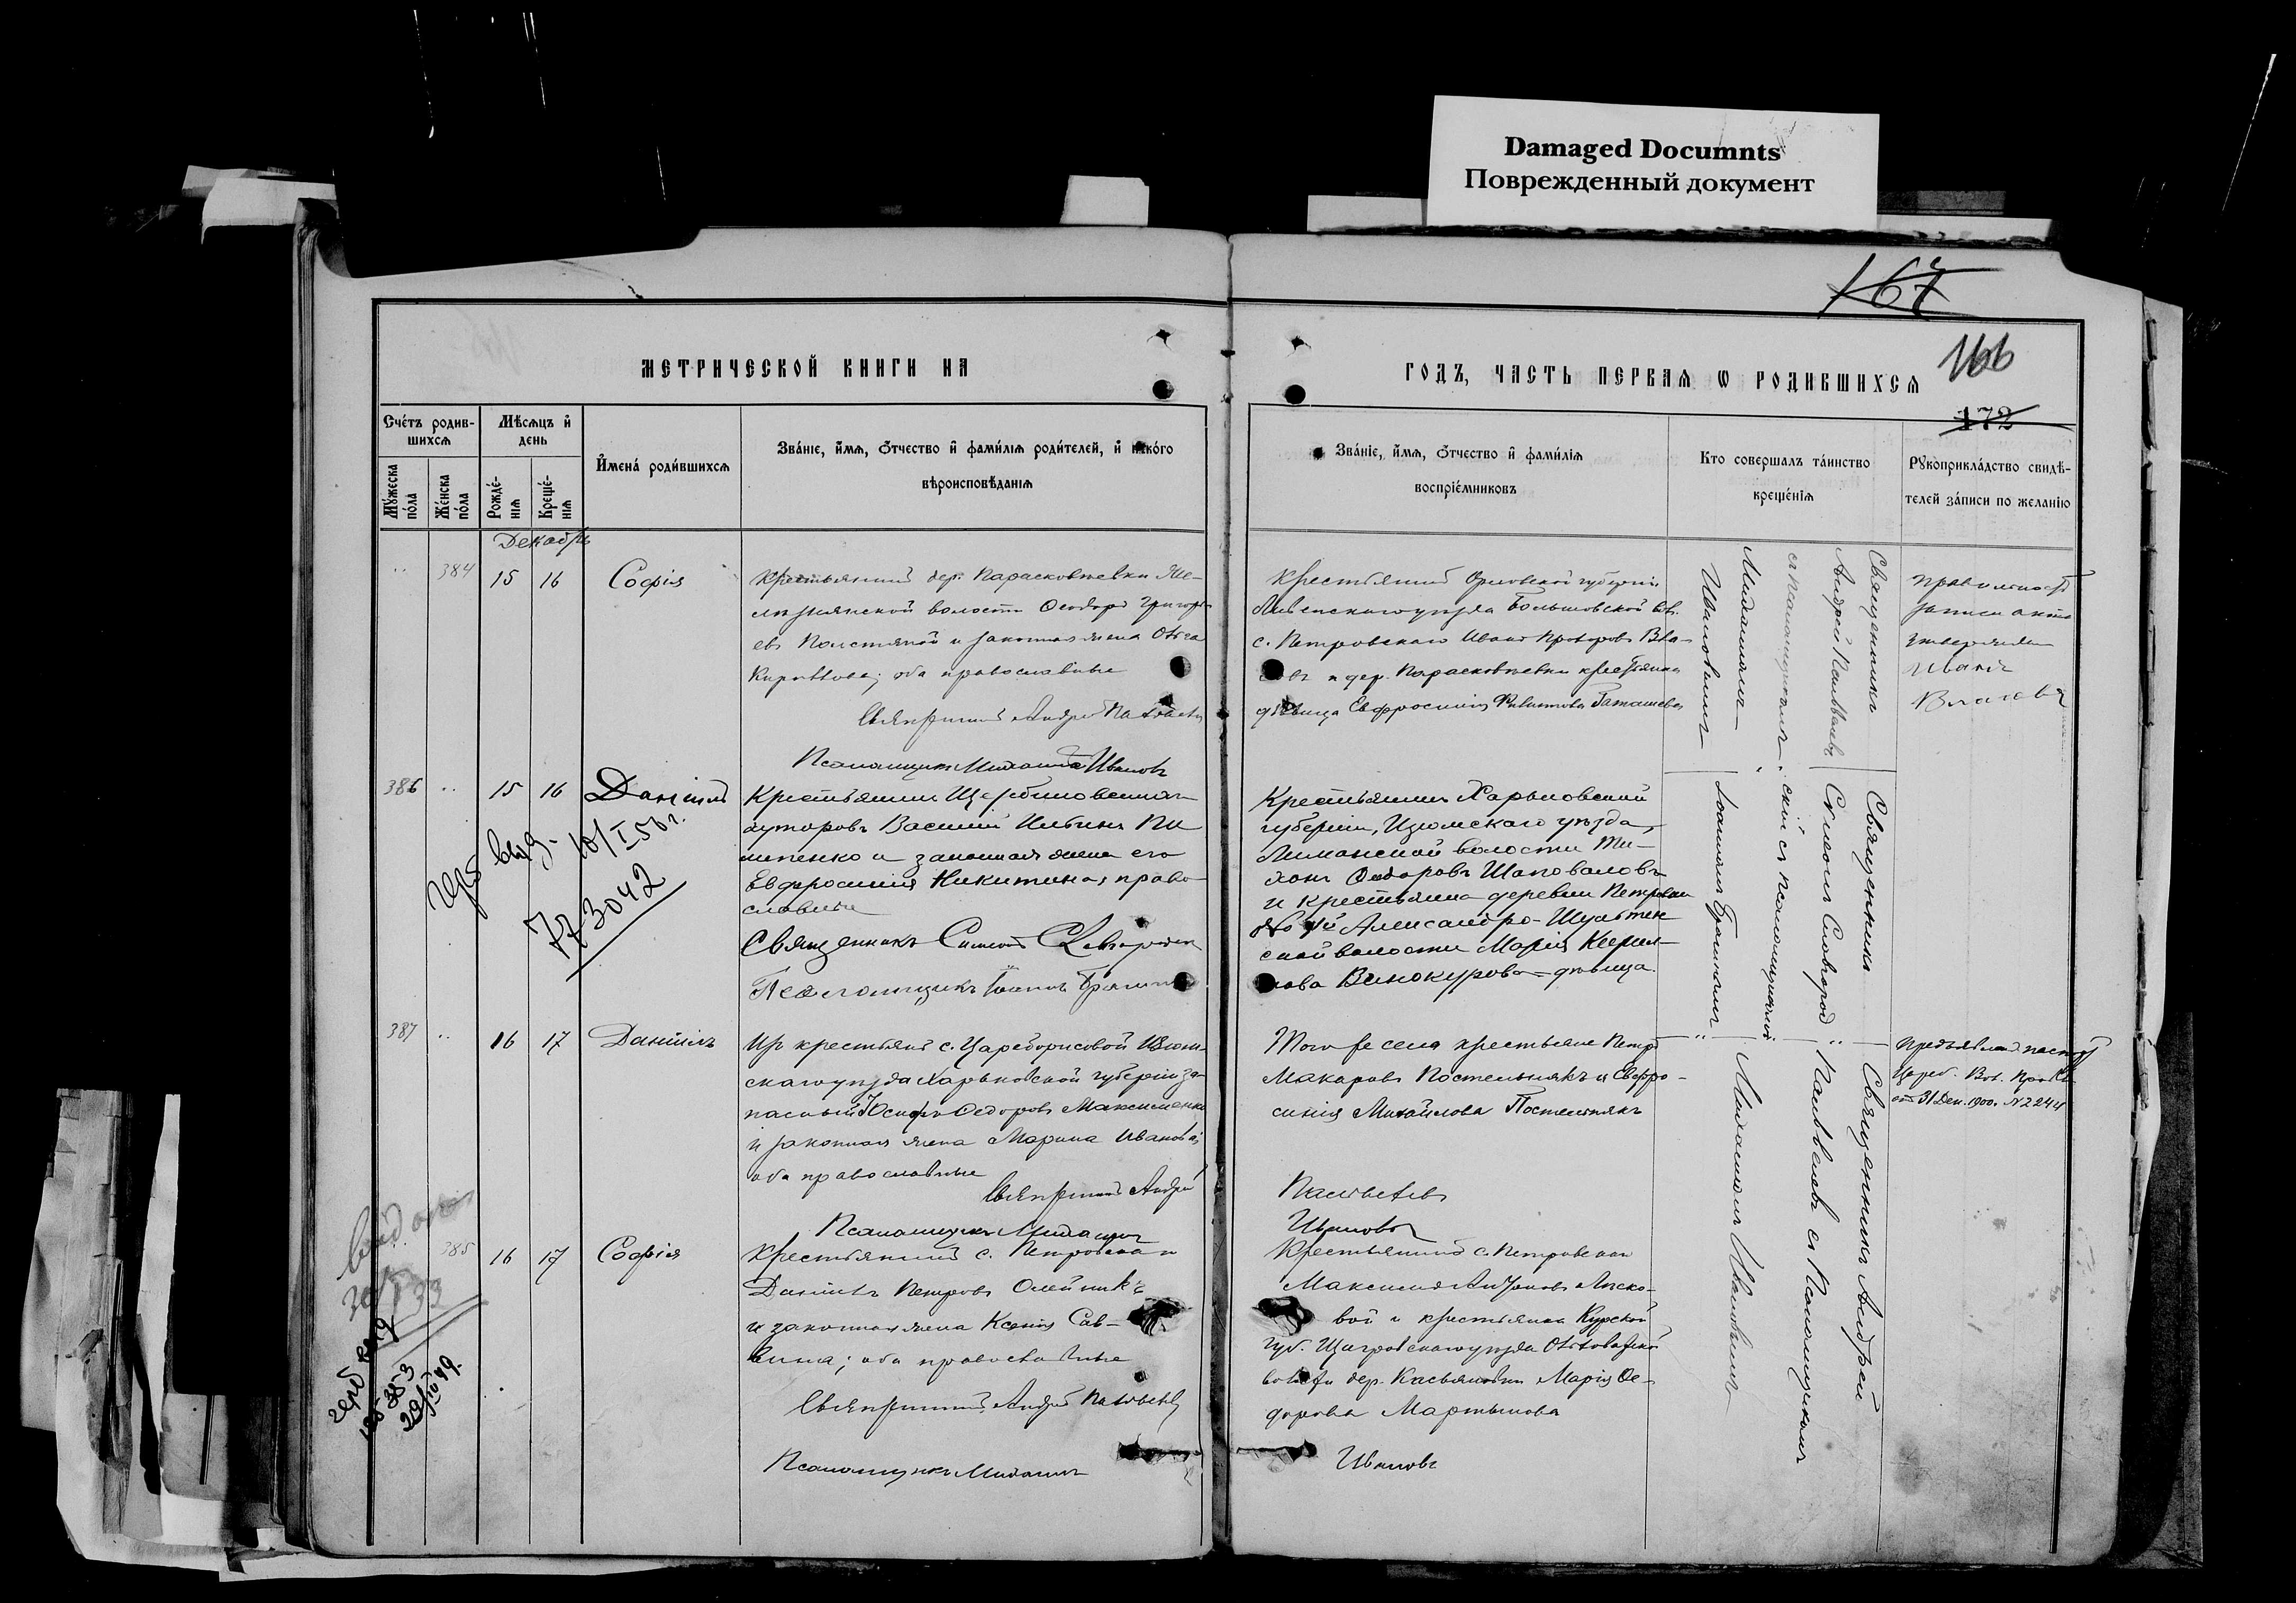 Damaged Documnts
Поврежденный документ
167
МЕТРИЧЕСКОЙ КНИГИ НА
ГОДЪ, ЧАСТЬ ПЕРВАЯ Ѡ РОДИВШИХСЯ
166
172
Счётъ родив-
шихся
Мѣсяцъ и
день
Мужеска
пола
Женска
пола
Рожде-
нія
Креще-
нія
Имена родившихся
Званіе, имя, отчество и фамилія родителей, и какого
вѣроисповѣданія
Званіе, имя, отчество и фамилія
воспріемниковъ
Кто совершалъ таинство
крещенія
Рукоприкладство свидѣ-
телей записи по желанію
Декабрь
384 15 16 Софія
Крестьянинъ дер. Парасковіевки Же-
лѣзнянской волости Ѳеодоръ Григорь-
евъ и законная жена
оба православные
Священникъ Андрей
Псаломщикъ Михаилъ Ивановъ
Крестьянинъ Орловской губерніи
Ливенскаго уѣзда вол.
с. Петровскаго Иванъ Прохоровъ Вла-
совъ и дер. Парасковіевки крестьянка
дѣвица Евфросинія
Священникъ
Андрей
съ псаломщикомъ
Михаиломъ
Ивановымъ
Правильность
записи акта
утверждаю
Иванъ
Власовъ
386 15 16 Даніилъ
Крестьянинъ Щербиновскихъ
хуторовъ Василій Ильинъ Пи
липенко и законная жена его
Евфросинія Никитина, право-
славные
Священникъ Симеонъ
Псаломщикъ Іоаннъ
герб выд. 18/I 50 г.
773042
Крестьянинъ Харьковской
губерніи, Изюмскаго уѣзда,
Лиманской волости Ти-
хонъ Ѳеодоровъ Шаповаловъ
и крестьянка деревни Петровки
Александро-Шультин
ской волости Марія Кирил-
лова Винокурова = дѣвица.
Священникъ
Симеонъ
скій съ псаломщикомъ
Іоанномъ
387 16 17 Даніилъ
Изъ крестьянъ с. Цареборисовой Изюм-
скаго уѣзда Харьковской губерніи за-
пасный Юсифъ Ѳедоровъ Максименко
и законная жена Марина Иванова;
оба православные
Священникъ Андрей
Псаломщикъ Михаилъ
Того же села крестьяне Петръ
Макаровъ Постельнякъ и Евфро-
синія Михайлова Постельнякъ
Ивановъ
Священникъ Андрей
съ Псаломщикомъ
Михаиломъ Ивановымъ
Предъявленъ паспортъ
Цареб. Вол. Правл.
отъ 31 Дек. 1900. № 2244
385 16 17 Софія
Крестьянинъ с. Петровскаго
Даніилъ Петровъ Олейникъ
и законная жена Ксенія Сав-
вина; оба православные
Священникъ Андрей
Псаломщикъ Михаилъ
Крестьянинъ с. Петровскаго
Максимъ Антоновъ Лиско-
вой и крестьянка Курской
губ. Щигровскаго уѣзда
волости дер. Касьяновки Марія Ѳе-
дорова Мартынова
Ивановъ